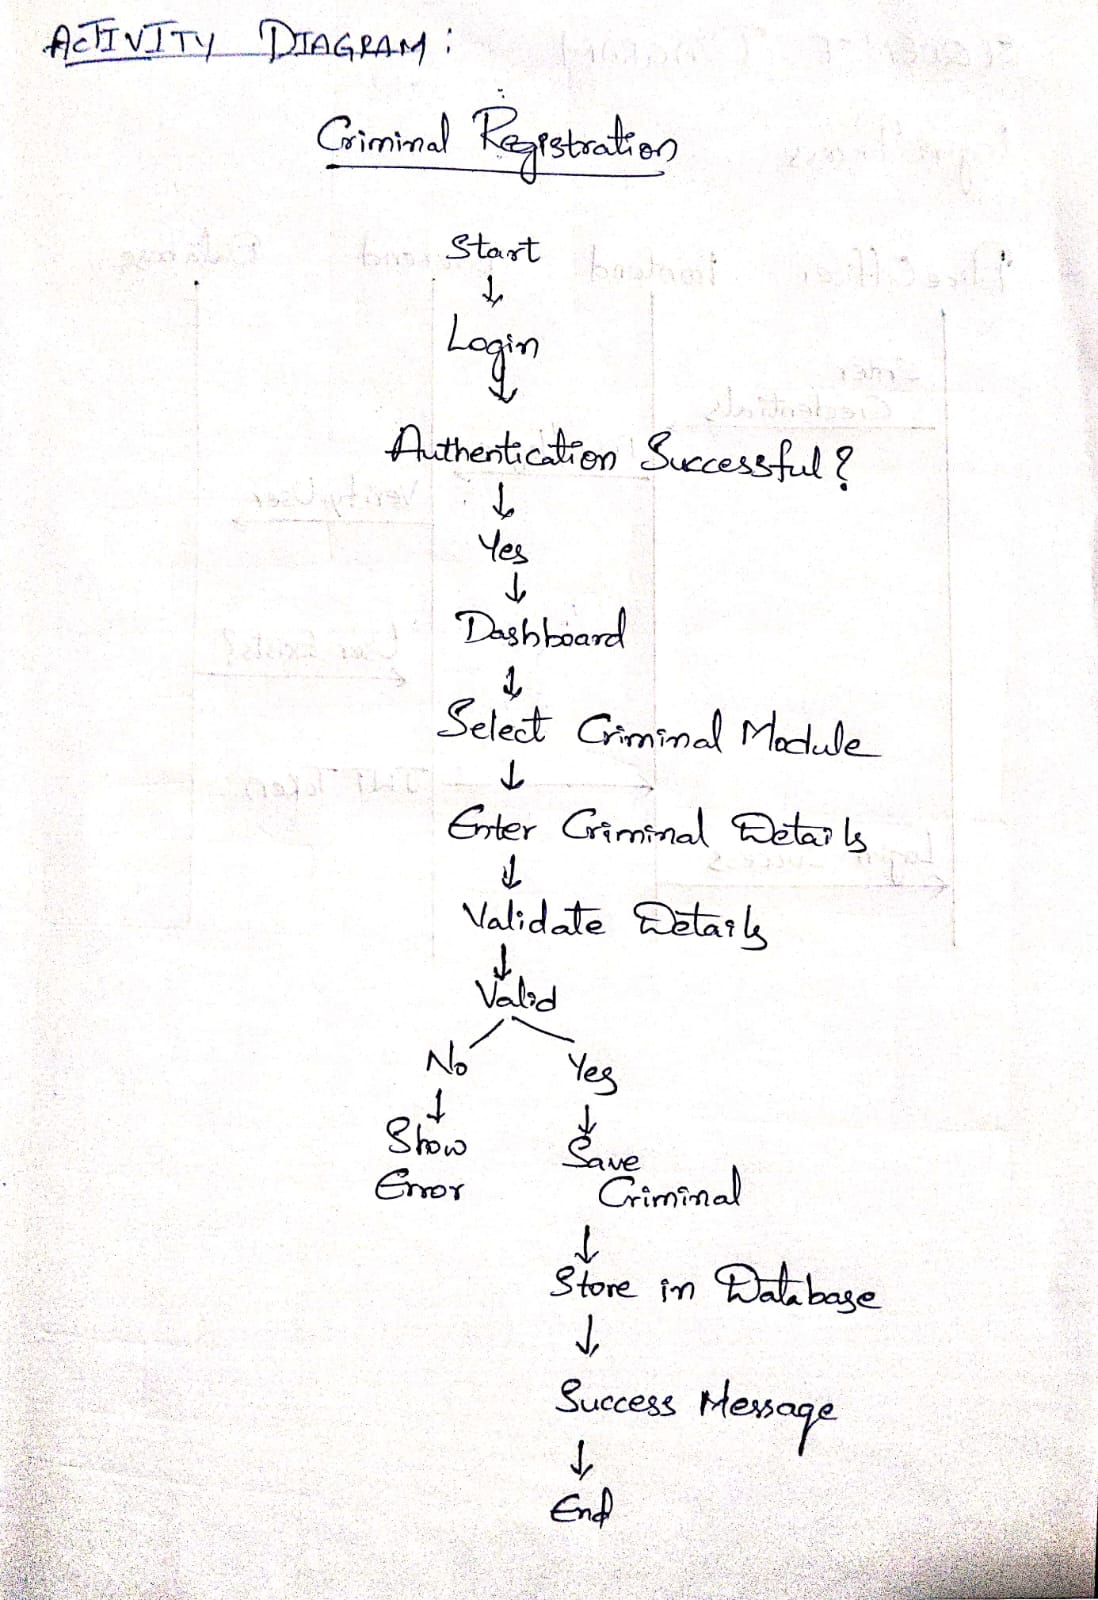 ACTIVITY DIAGRAM:
Criminal Registration
Start
↓
Login
↓
Authentication Successful?
↓
Yes
↓
Dashboard
↓
Select Criminal Module
↓
Enter Criminal Details
↓
Validate Details
↓
Valid
No Yes
↓ ↓
Show Save
Error Criminal
↓
Store in Database
↓
Success Message
↓
End